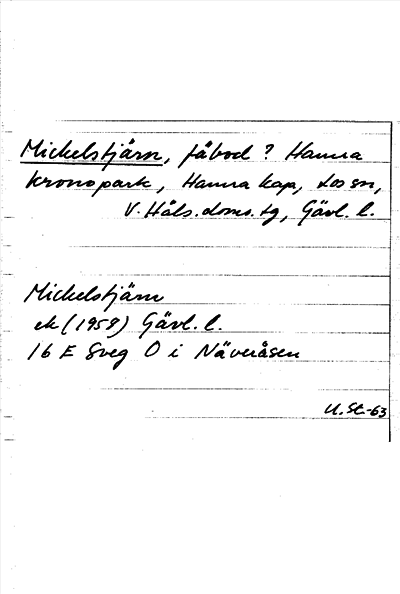 Mickelstjärn, fäbod? Hamra
kronopark, Hamra kap, Los sn,
V. Häls. doms. tg, Gävl. l.
Mickelstjärn
ek (1959) Gävl. l.
16 E Sveg O i Näveråsen
U. St-63